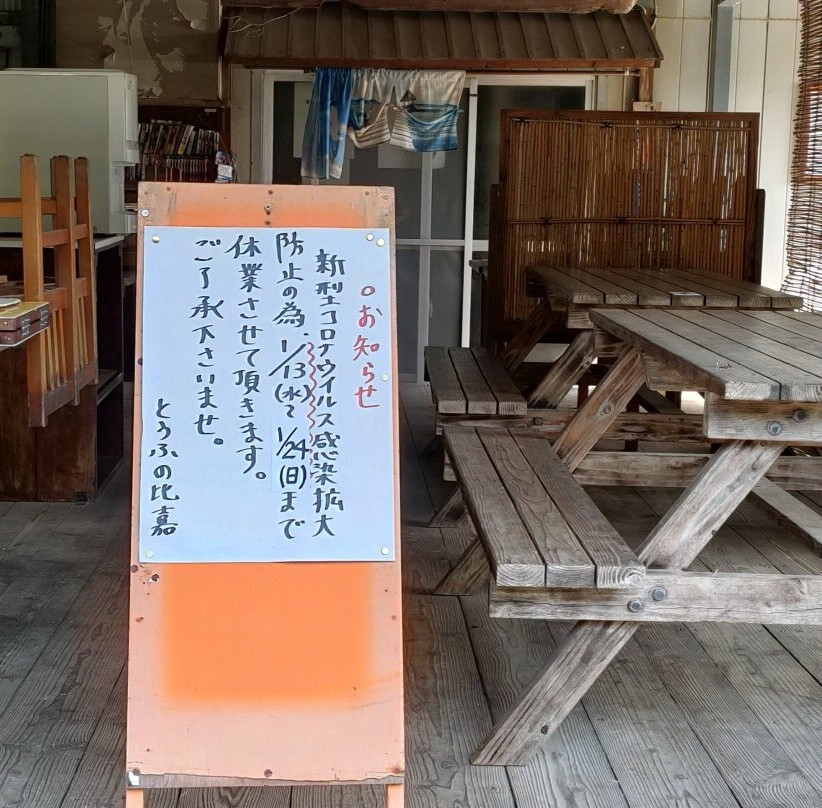 。お知らせ
新型コロナウイルス感染拡大
防止の為、1/13(水)~1/24(日)まで
休業させて頂きます。
ご了承下さいませ。
とうふの比嘉